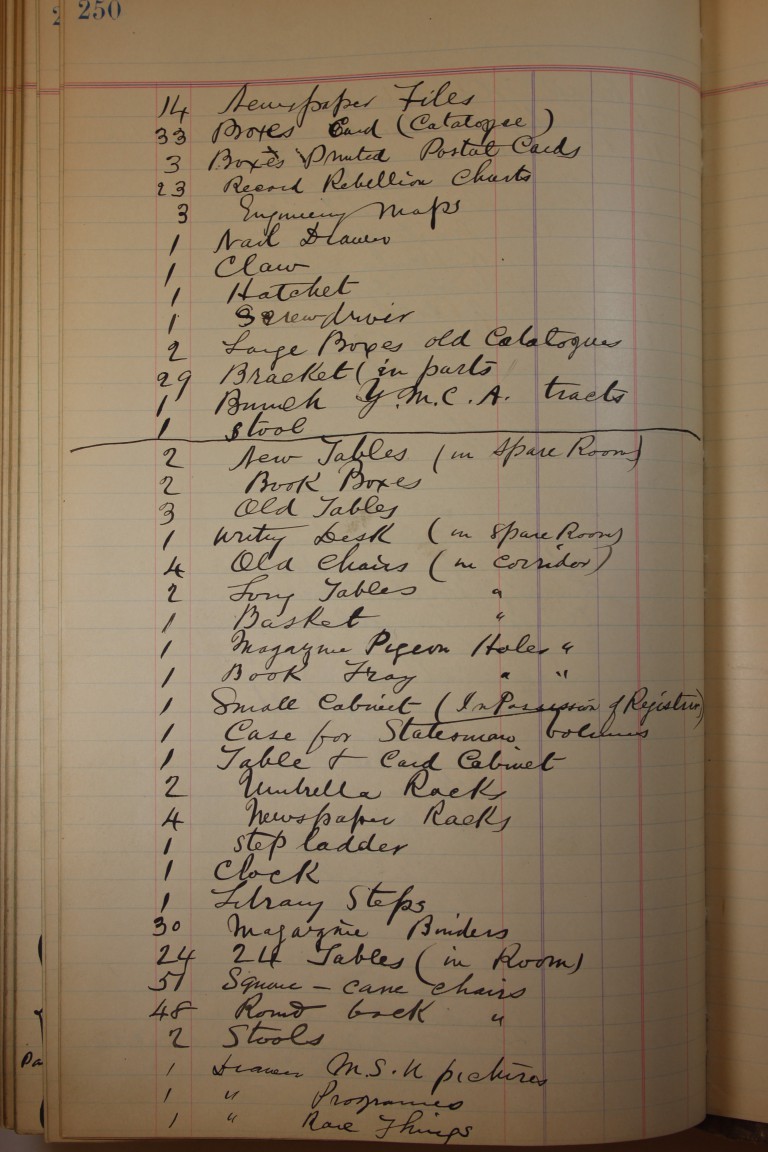 250
14 Newspaper Files
33 Boxes Card (Catalogue)
3 Boxes Printed Postal Cards
23 Record Rebellion Charts
3 Engineering Maps
1 Nail Drawer
1 Claw
1 Hatchet
1 Screwdriver
2 Large Boxes old Catalogues
29 Bracket (in parts
1 Bunch Y.M.C.A. tracts
1 Stool
2 New Tables (in Spare Room)
2 Book Boxes
3 Old Tables
1 Writing Desk (in Spare Room)
4 Old Chairs (in corridor)
2 Long Tables "
1 Basket "
1 Magazine Pigeon Holes "
1 Book Tray " "
1 Small Cabinet (In Possession of Registrar)
1 Case for Statesman volumes
1 Table & Card Cabinet
2 Umbrella Racks
4 Newspaper Racks
1 Step ladder
1 Clock
1 Library Steps
30 Magazine Binders
24 24 Tables (in Room)
51 Square - cane chairs
48 Round back "
2 Stools
1 Drawer M.S.U pictures
1 " Programes
1 " Rare Things
Pa